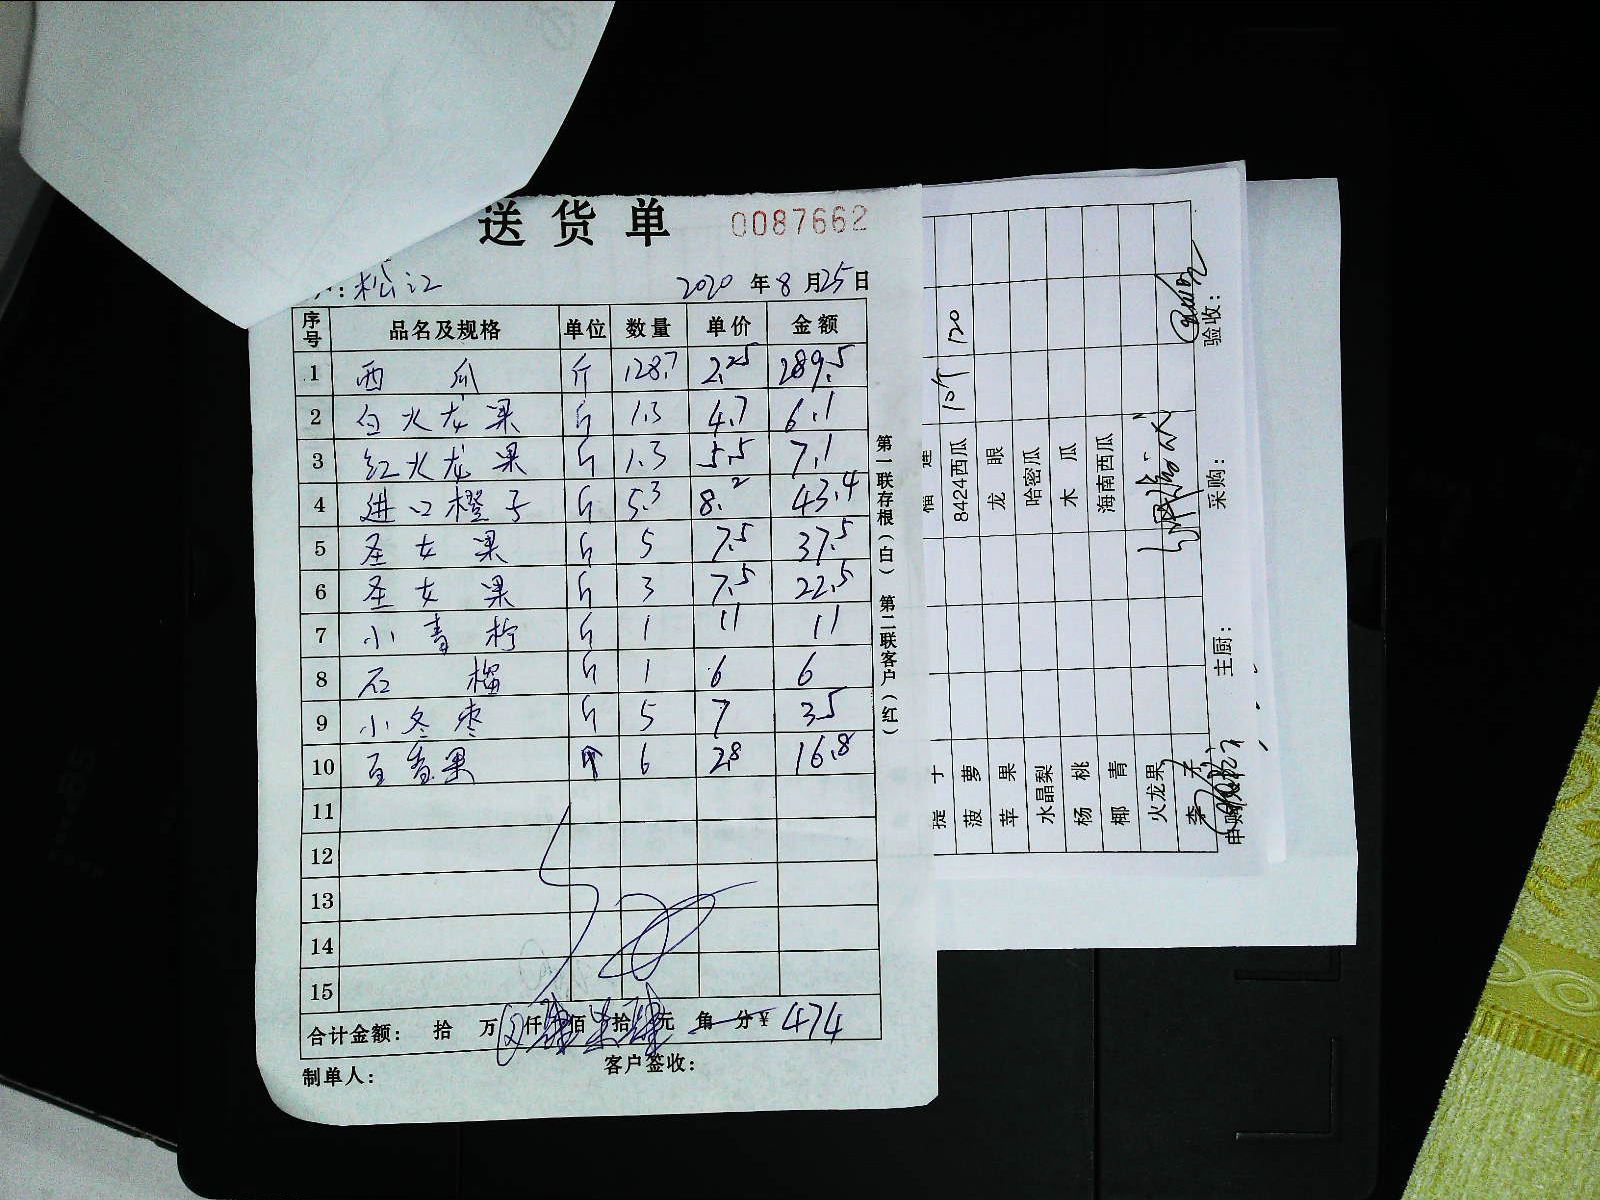 送货单 0087662
松江 2020年8月25日
序号 品名及规格 单位 数量 单价 金额
1 西瓜 斤 128.7 2.25 289.5
2 白火龙果 斤 1.3 4.7 6.1
3 红火龙果 斤 1.3 5.5 7.1
4 进口橙子 斤 5.3 8.2 43.4
5 圣女果 斤 5 7.5 37.5
6 圣女果 斤 3 7.5 22.5
7 小青柠 斤 1 11 11
8 石榴 斤 1 6 6
9 小冬枣 斤 5 7 35
10 百香果 个 6 2.8 16.8
11
12
13
14
15
合计金额: 拾 万 仟 佰 拾 元 角 分¥ 474
制单人: 客户签收:
第一联存根(白) 第二联客户(红)
榴莲
菠萝 8424西瓜 10个 120
苹果 龙眼
水晶梨 哈密瓜
杨桃 木瓜
椰青 海南西瓜
火龙果
李子
主厨: 采购: 验收: